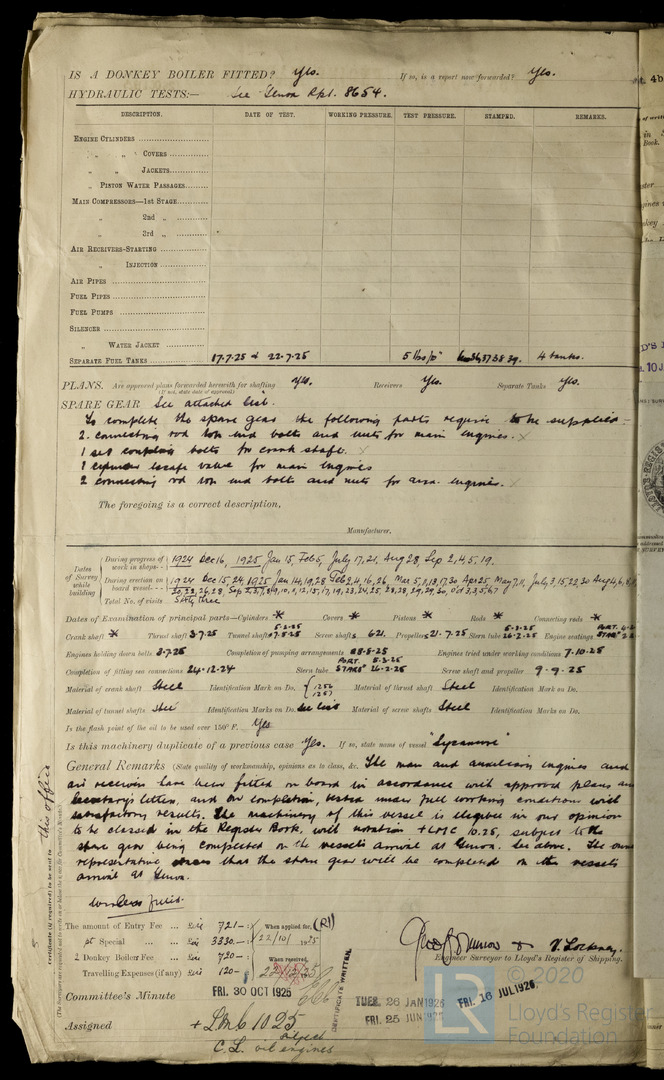 IS A DONKEY BOILER FITTED? Yes. If so, is a report now forwarded? Yes.
HYDRAULIC TESTS:— See Genoa Rpt. 8654.
DESCRIPTION. DATE OF TEST. WORKING PRESSURE. TEST PRESSURE. STAMPED. REMARKS.
ENGINE CYLINDERS
" " COVERS
" " JACKETS
" PISTON WATER PASSAGES
MAIN COMPRESSORS—1st STAGE
" 2nd "
" 3rd "
AIR RECEIVERS-STARTING
" INJECTION
AIR PIPES
FUEL PIPES
FUEL PUMPS
SILENCER
" WATER JACKET
SEPARATE FUEL TANKS 17.7.25 & 22.7.25 5 lbs/□" 37.38.39. 4 tanks.
PLANS. Are approved plans forwarded herewith for shafting Yes. Receivers Yes. Separate Tanks Yes.
(If not, state date of approval)
SPARE GEAR See attached list.
To complete the spare gear the following parts require to be supplied
2 connecting rod top end bolts and nuts for main engines. X
1 set coupling bolts for crank shaft.
1 cylinder escape valve for main engines
2 connecting rod top end bolts and nuts for aux. engines.
The foregoing is a correct description,
Manufacturer.
Dates of Survey while building
During progress of work in shops-- 1924 Dec 16, 1925 Jan 15, Feb 5, July 17, 21, Aug 28, Sep 2, 4, 5, 19.
During erection on board vessel--- 1924 Dec 15, 24, 1925 Jan 14, 19, 28, Feb 2, 4, 16, 26, Mar 5, 11, 13, 17, 30, Apr 25, May 7, 11, July 3, 15, 22, 30, Aug 4, 6,
Total No. of visits Sixty three
Dates of Examination of principal parts—Cylinders * Covers * Pistons * Rods * Connecting rods *
Crank shaft * Thrust shaft 3.7.25 Tunnel shafts Screw shafts Propellers 21.7.25 Stern tube 26.2.25 Engine seatings
Engines holding down bolts 3.7.25 Completion of pumping arrangements 28.8.25 Engines tried under working conditions 7.10.25
Completion of fitting sea connections 24.12.24 Stern tube PORT. 5.3.25 STARB 26.2.25 Screw shaft and propeller 9.9.25
Material of crank shaft Steel Identification Mark on Do. Material of thrust shaft Steel Identification Mark on Do.
Material of tunnel shafts Steel Identification Marks on Do. See list Material of screw shafts Steel Identification Marks on Do.
Is the flash point of the oil to be used over 150° F. Yes
Is this machinery duplicate of a previous case Yes. If so, state name of vessel "Sycamore"
General Remarks (State quality of workmanship, opinions as to class, &c. The main and auxiliary engines and
air receivers have been fitted on board in accordance with approved plans and
Secretary's letters, and on completion, tested under full working conditions with
satisfactory results. The machinery of this vessel is eligible in our opinion
to be classed in the Register Book, with notation +LMC 10.25, subject to the
spare gear being completed on the vessels arrival at Genoa. See above. The owners
representative that the spare gear will be completed on the vessels
arrival at Genoa.
The amount of Entry Fee ... Lire 721 — : When applied for, (R1)
Special ... Lire 3330 — : 22/10/1925
2 Donkey Boiler Fee ... Lire 720 — : When received,
Travelling Expenses (if any) Lire 120 — :
V. Lockney.
Engineer Surveyor to Lloyd's Register of Shipping.
Committee's Minute FRI. 30 OCT 1925 TUES. 26 JAN 1926 FRI. 16 JUL 1926
FRI. 25 JUN 1926
Assigned + LMC 10 25
subject
C.L. oil engines
CERTIFICATE WRITTEN.
Certificate (if required) to be sent to this office
(The Surveyors are requested not to write on or below the space for Committee's Minute.)
© 2020
LR
Lloyd's Register
Foundation